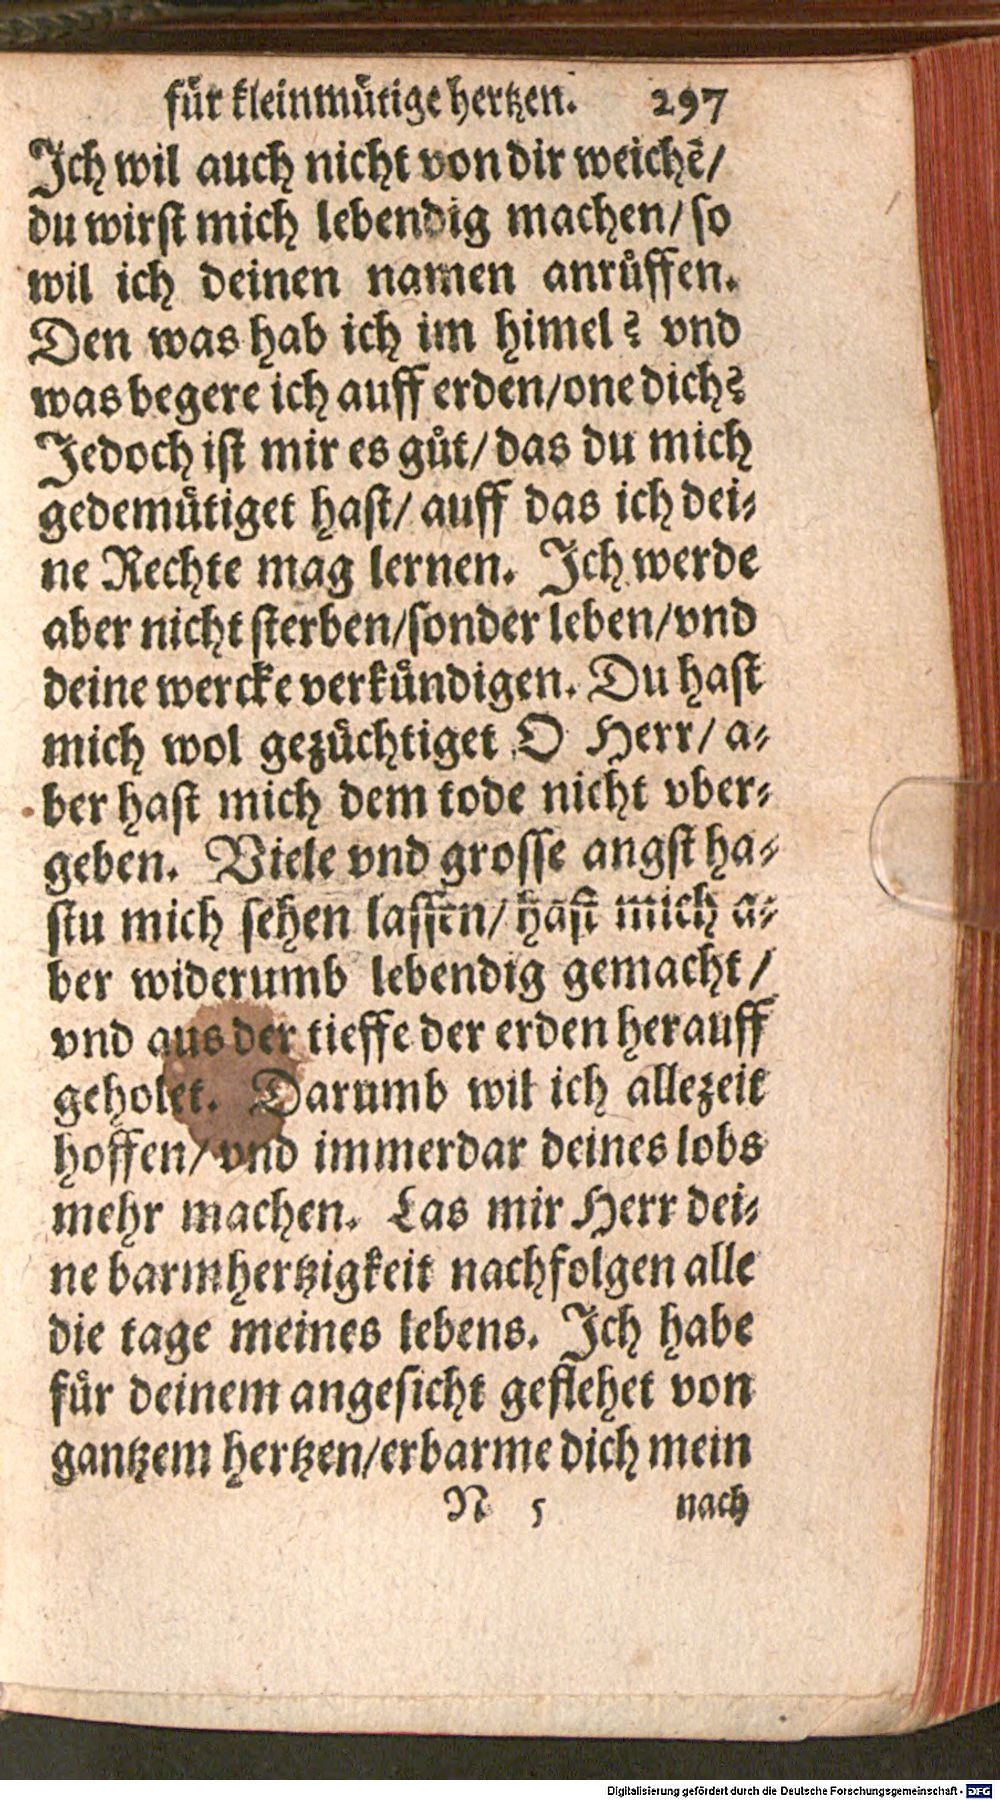 fuͤr kleinmuͤtige hertzen. 297
Ich wil auch nicht von dir weichē/
du wirst mich lebendig machen/ so
wil ich deinen namen anruͤffen.
Den was hab ich im himel? vnd
was begere ich auff erden/one dich?
Jedoch ist mir es guͤt/ das du mich
gedemuͤtiget hast/ auff das ich dei-
ne Rechte mag lernen. Ich werde
aber nicht sterben/sonder leben/vnd
deine wercke verkuͤndigen. Du hast
mich wol gezuͤchtiget O Herr/ a-
ber hast mich dem tode nicht vber-
geben. Viele vnd grosse angst ha-
stu mich sehen lassen/ hast mich a-
ber widerumb lebendig gemacht/
vnd aus der tieffe der erden herauff
geholet. Darumb wil ich allezeit
hoffen/ vnd immerdar deines lobs
mehr machen. Las mir Herr dei-
ne barmhertzigkeit nachfolgen alle
die tage meines lebens. Ich habe
fuͤr deinem angesicht geflehet von
gantzem hertzen/erbarme dich mein
N 5 nach
Digitalisierung gefördert durch die Deutsche Forschungsgemeinschaft - DFG